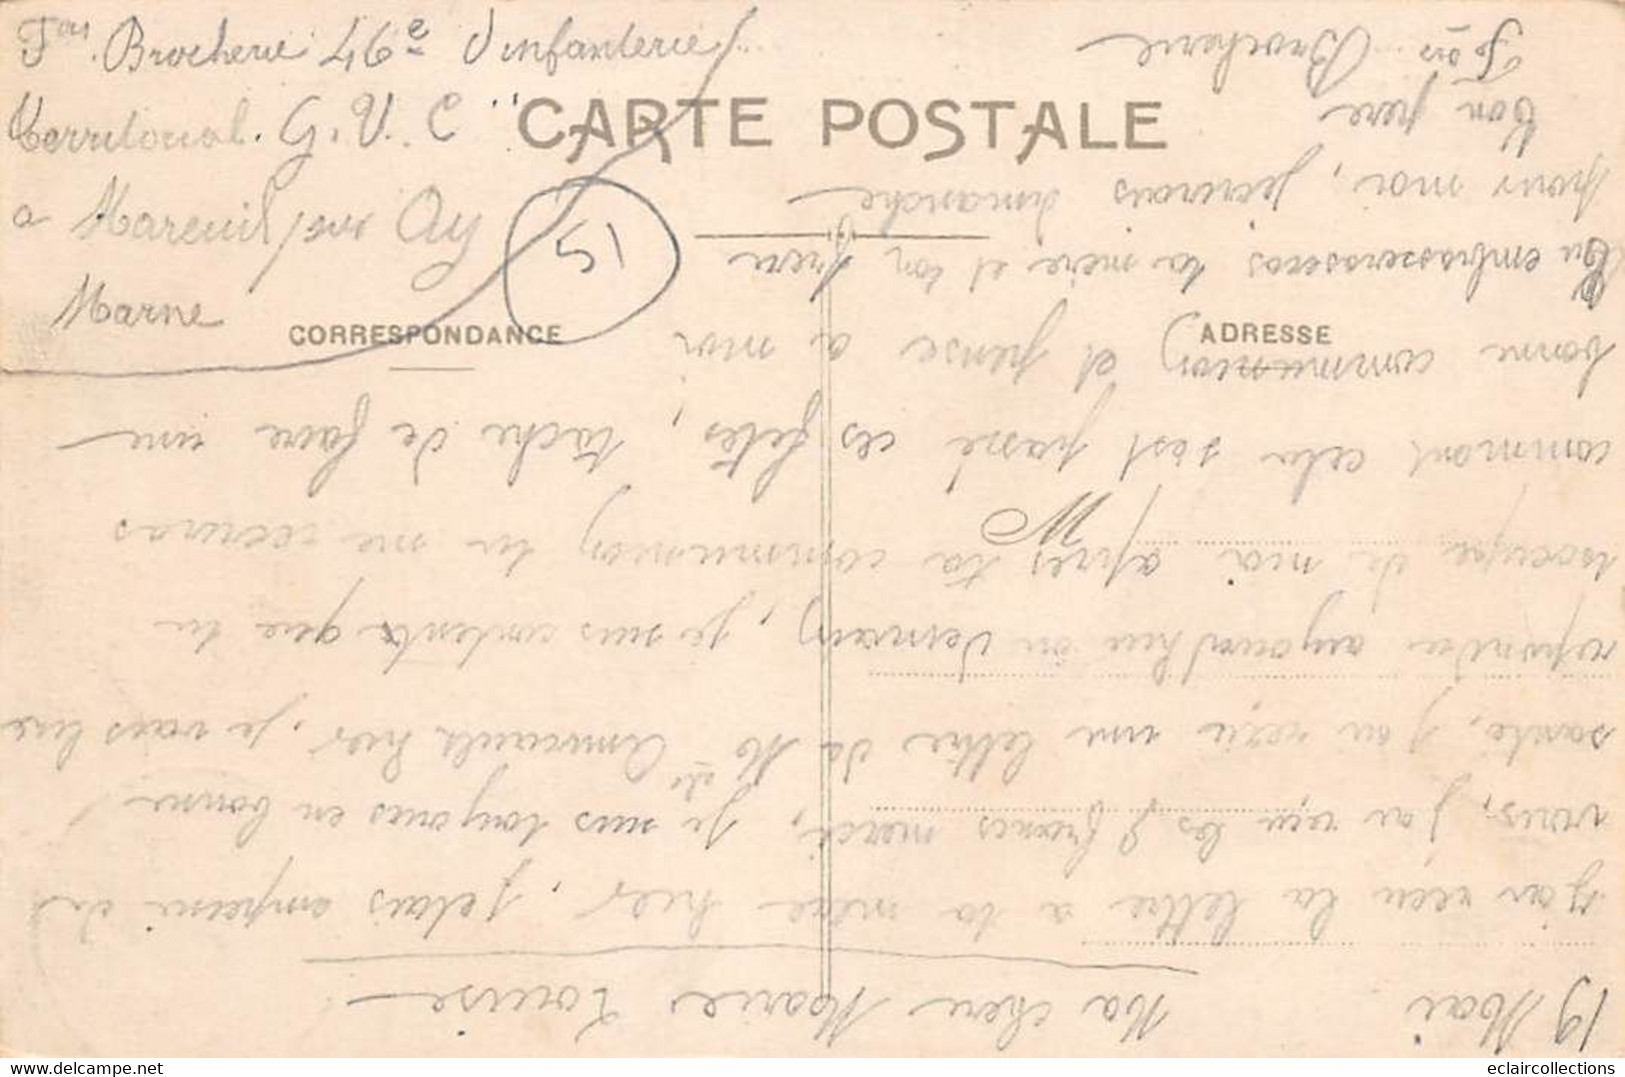 Fois Brocherie 46e d'infanterie
Territorial. G.V.C
a Mareuil/sur Ay
Marne
CARTE POSTALE
15
CORRESPONDANCE
ADRESSE
M
19 Mai Ma chere Marie Louise
J'ai reçu la lettre a ta mère hier, j'etais en peine de
vous, j'ai reçu les 5 francs merci, je suis toujours en bonne
santé, j'ai reçu une lettre de Mde hier, je vais lui
repondre aujourd'hui ou demain, je suis content que tu
t'occupe de moi apres ta communion tu me ecriras
comment cela s'est passé ces fetes, tache de faire une
bonne communion et pense a moi
Tu embrasseras ta mère et ton frere
pour moi, j'ecrirais dimanche
Ton pere
Fois Brocherie
eclaircollections.com